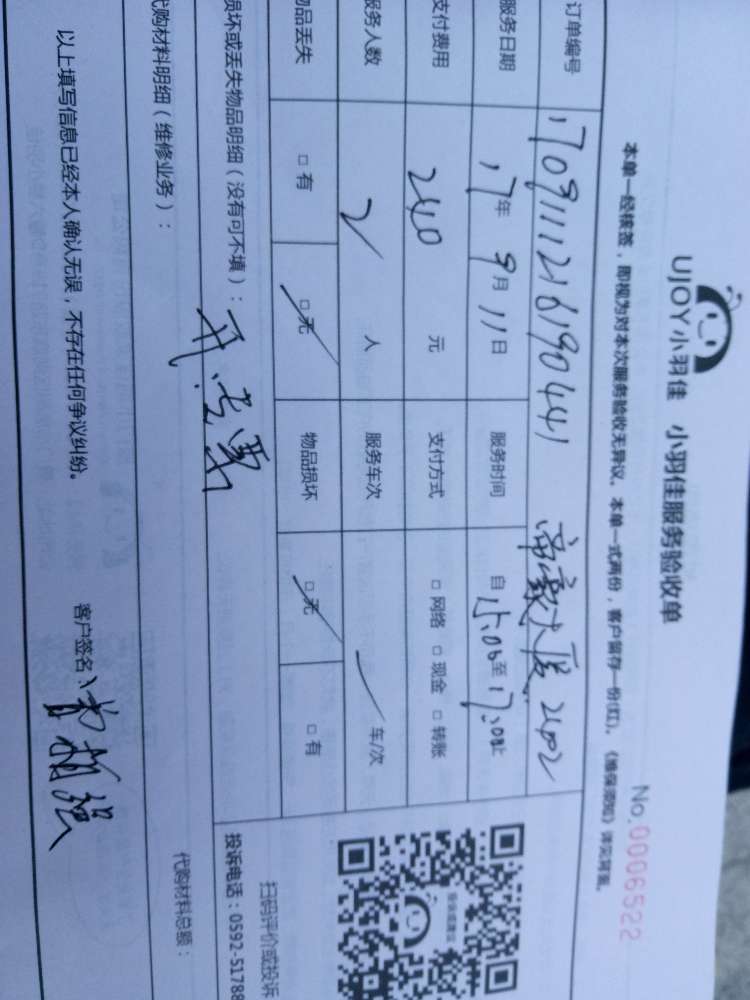 UJOY小羽佳 小羽佳服务验收单
No.0006522
本单一经核签，即视为对本次服务验收无异议。本单一式两份，客户留存一份(红)。《维保须知》详见背面。
订单编号 1709111216190441 帝豪大厦 2402
服务日期 17年 9月 11日 服务时间 自15:00至17:00止
支付费用 240 元 支付方式 □ 网络 □ 现金 □ 转账
服务人数 2 人 服务车次 / 车/次
物品丢失 □ 有 □ 无 物品损坏 □ 无 □ 有
损坏或丢失物品明细（没有可不填）：
开发票
代购材料明细（维修业务）：
代购材料总额：
以上填写信息已经本人确认无误，不存在任何争议纠纷。 客户签名：
扫码评价或投诉
投诉电话：0592-51788